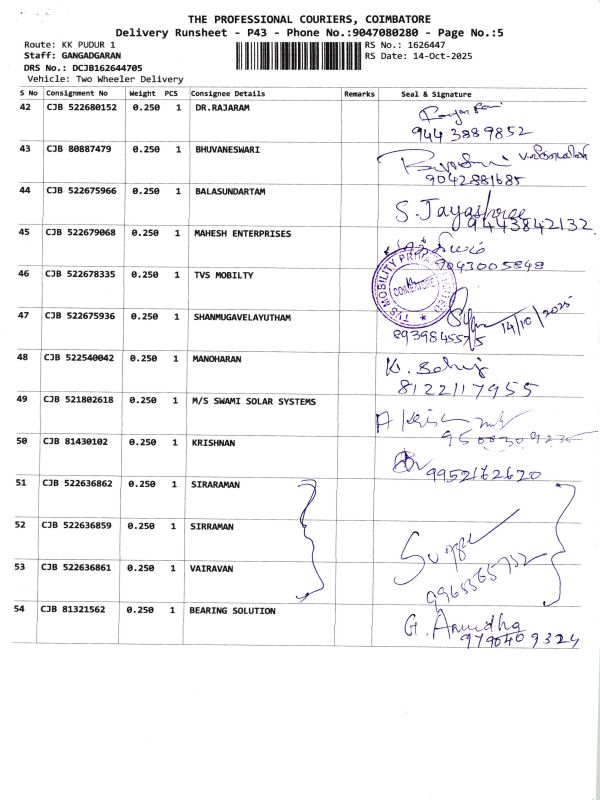 THE PROFESSIONAL COURIERS, COIMBATORE
Delivery Runsheet - P43 - Phone No.:9047080280 - Page No.:5
Route: KK PUDUR 1 RS No.: 1626447
Staff: GANGADGARAN RS Date: 14-Oct-2025
DRS No.: DCJB162644705
Vehicle: Two Wheeler Delivery
S No Consignment No Weight PCS Consignee Details Remarks Seal & Signature
42 CJB 522680152 0.250 1 DR.RAJARAM
944 3889852
43 CJB 80887479 0.250 1 BHUVANESWARI
9042881685
44 CJB 522675966 0.250 1 BALASUNDARTAM
S. Jayashree
9443842132
45 CJB 522679068 0.250 1 MAHESH ENTERPRISES
9043005848
46 CJB 522678335 0.250 1 TVS MOBILTY
TVS MOBILITY
COIMBATORE
47 CJB 522675936 0.250 1 SHANMUGAVELAYUTHAM
14/10/2025
48 CJB 522540042 0.250 1 MANOHARAN
8122117955
49 CJB 521802618 0.250 1 M/S SWAMI SOLAR SYSTEMS
50 CJB 81430102 0.250 1 KRISHNAN
9952162620
51 CJB 522636862 0.250 1 SIRARAMAN
52 CJB 522636859 0.250 1 SIRRAMAN
53 CJB 522636861 0.250 1 VAIRAVAN
54 CJB 81321562 0.250 1 BEARING SOLUTION
G. Anudha
9790409324